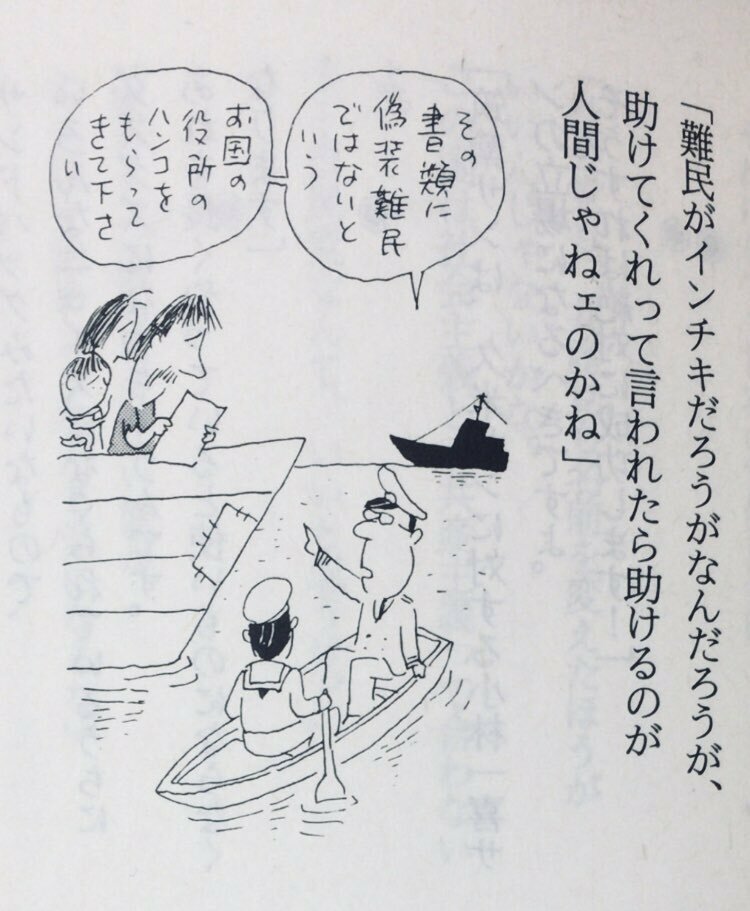 「難民がインチキだろうがなんだろうが、
助けてくれって言われたら助けるのが
人間じゃねェのかね」
その
書類に
偽装難民
ではないと
いう
お国の
役所の
ハンコを
もらって
きて下さ
い